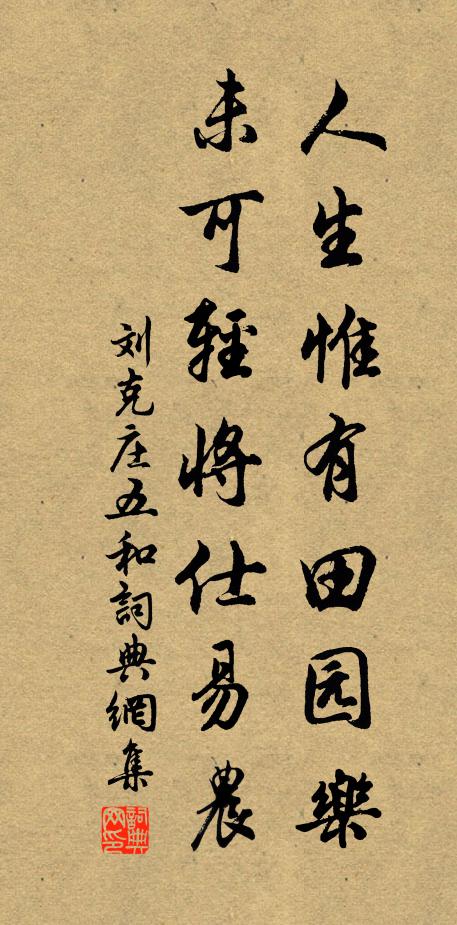 人生惟有田园樂
未可輕將仕易農
刘克庄五和詞典網集
詞典网印